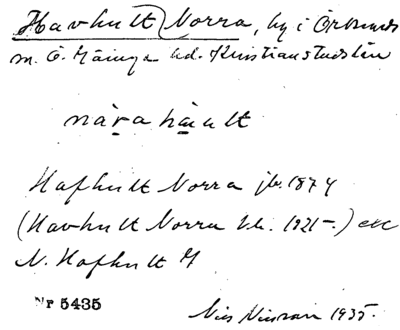 Havhult Norra, by i Örkeneds
sn. Ö. Göinge hd. Kristianstads län
nàra hàult
Hafhult Norra jb. 1874
(Havhult Norra 1821-) etc
N. Hafhult
Nr 5435
Nils Nilsson 1935.